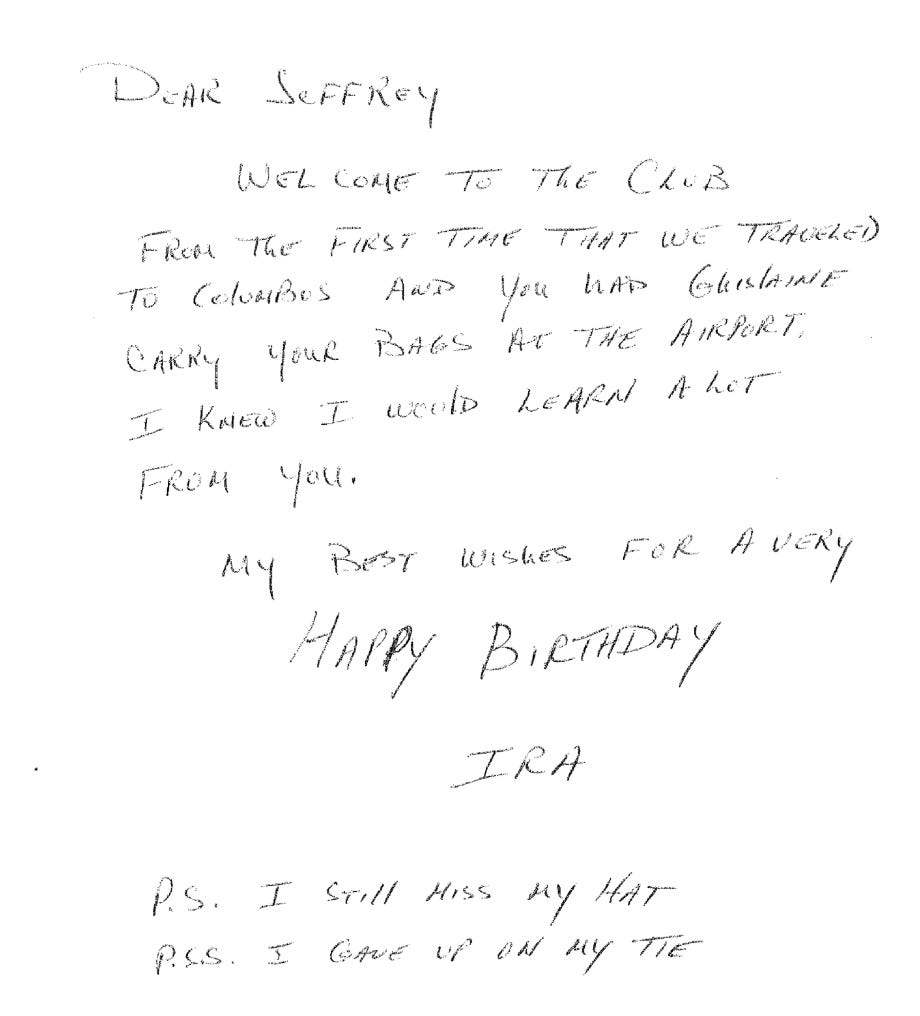 DEAR JEFFREY
WELCOME TO THE CLUB
FROM THE FIRST TIME THAT WE TRAVELED
TO COLUMBUS AND YOU HAD GHISLAINE
CARRY YOUR BAGS AT THE AIRPORT.
I KNEW I WOULD LEARN A LOT
FROM YOU.
MY BEST WISHES FOR A VERY
HAPPY BIRTHDAY
IRA
P.S. I STILL MISS MY HAT
P.S.S. I GAVE UP ON MY TIE